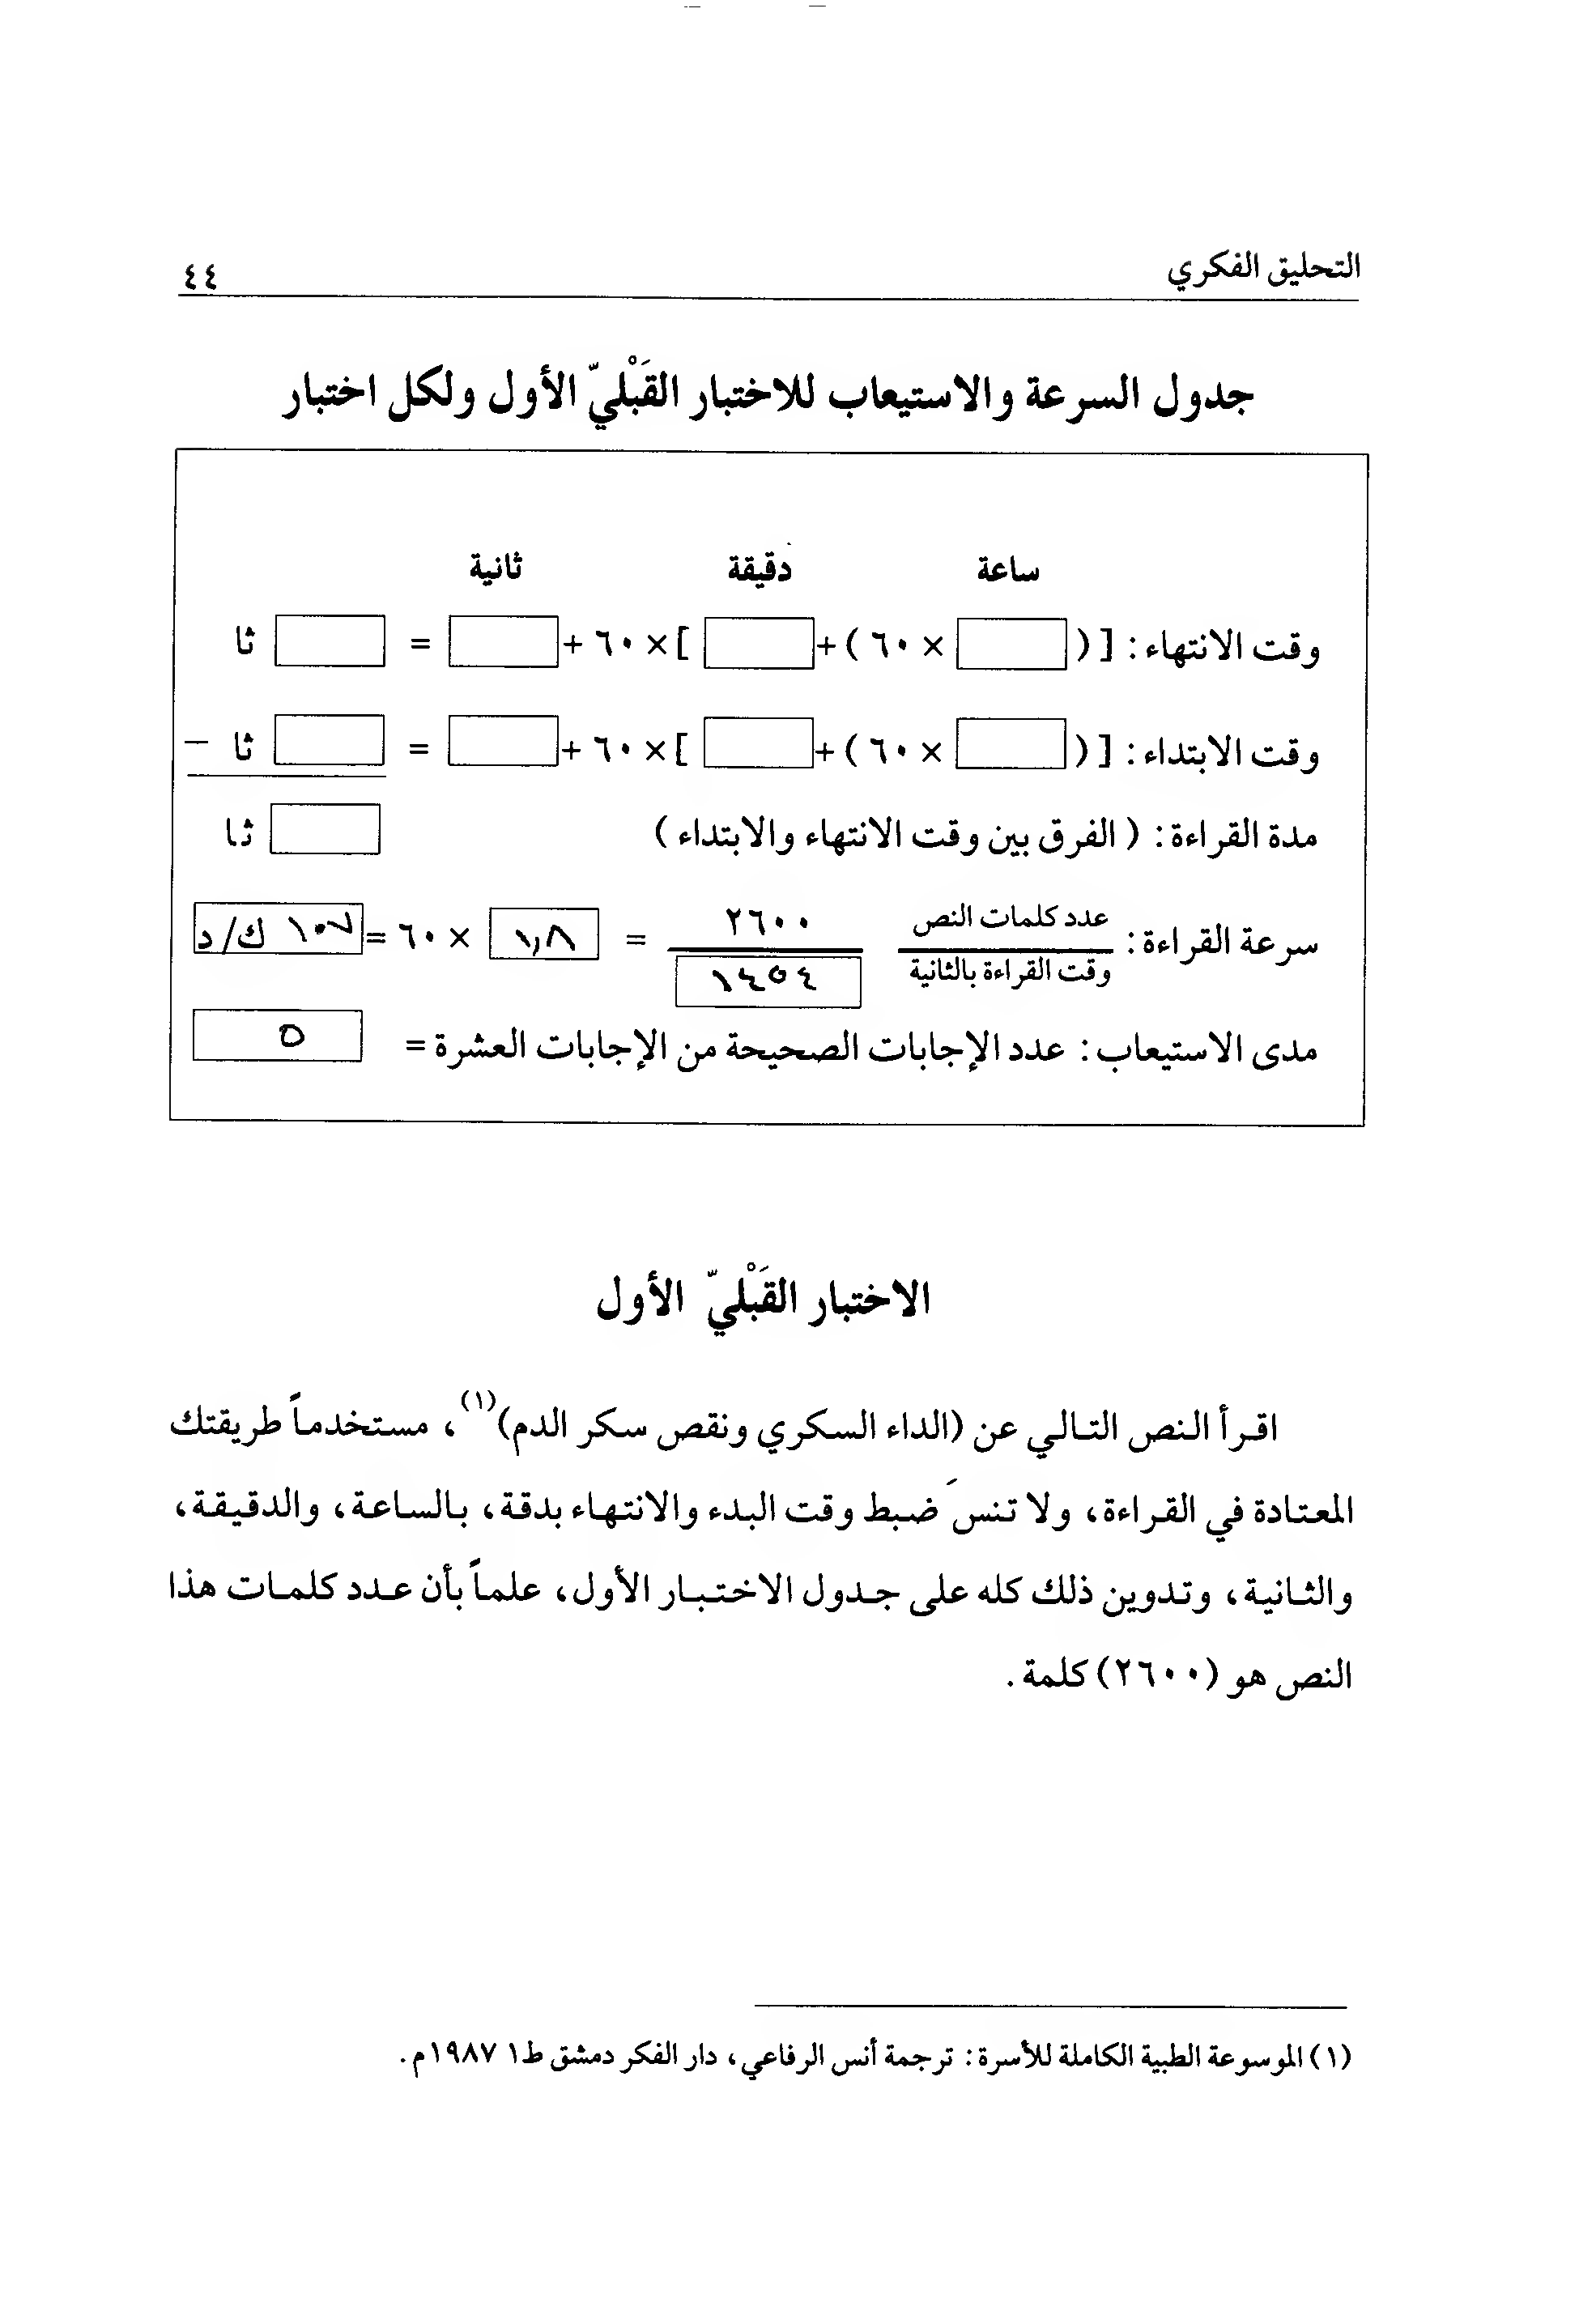 التحليق الفكري
٤٤
جدول السرعة والاستيعاب للاختبار القَبْليّ الأول ولكل اختبار
ساعة دقيقة ثانية
وقت الانتهاء : [ ( × ٦٠ ) + ] × ٦٠ + = ثا
وقت الابتداء : [ ( × ٦٠ ) + ] × ٦٠ + = ثا –
مدة القراءة : ( الفرق بين وقت الانتهاء والابتداء ) ثا
سرعة القراءة : عدد كلمات النص / وقت القراءة بالثانية ٢٦٠٠ / ١٤٥٤ = ١,٨ × ٦٠ = ١٠٧ ك/د
مدى الاستيعاب : عدد الإجابات الصحيحة من الإجابات العشرة = ٥
الاختبار القَبْليّ الأول
اقرأ النص التالي عن (الداء السكري ونقص سكر الدم)(١)، مستخدماً طريقتك
المعتادة في القراءة، ولا تنسَ ضبط وقت البدء والانتهاء بدقة، بالساعة، والدقيقة،
والثانية، وتدوين ذلك كله على جدول الاختبار الأول، علماً بأن عدد كلمات هذا
النص هو (٢٦٠٠) كلمة.
(١) الموسوعة الطبية الكاملة للأسرة : ترجمة أنس الرفاعي، دار الفكر دمشق ط١ ١٩٨٧م.